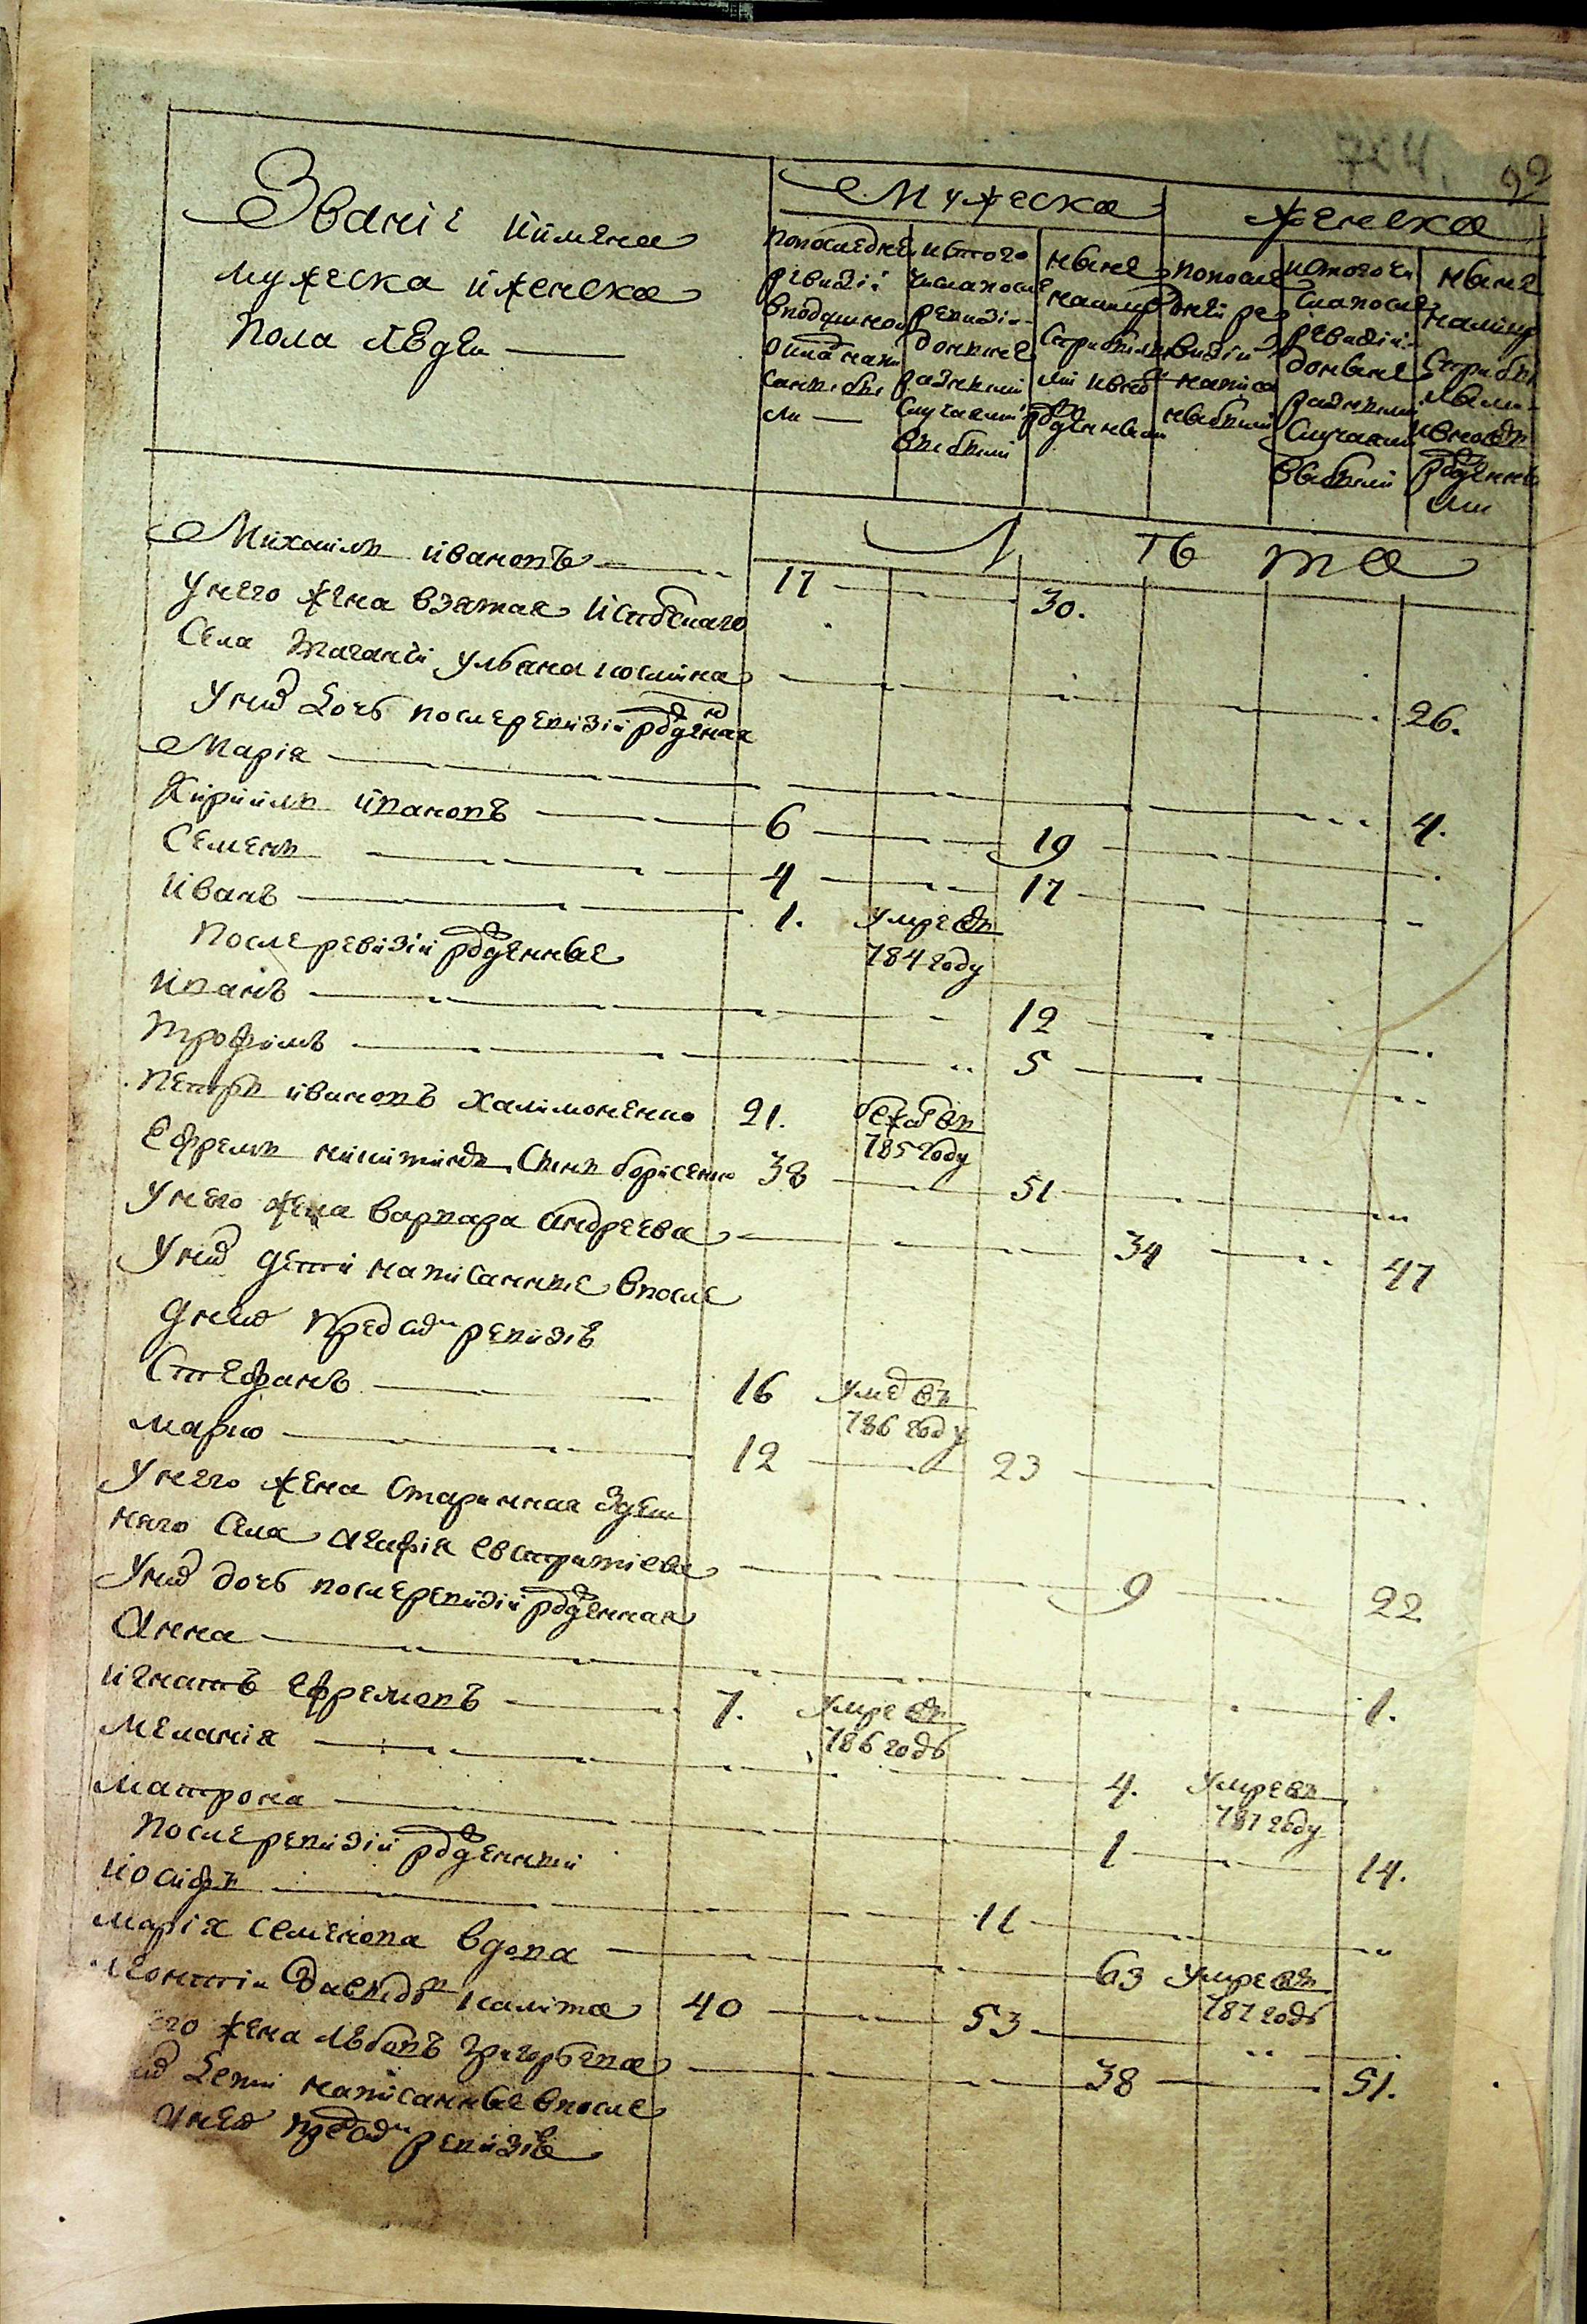 704. 92
Званіе и имена
мужеска и женска
пола людеи
Мужеска
Женска
по последней
ревизіи
в подушной
оклад напи
саны бы
ли
ис того
числа после
ревизіи
до ныне
разными
случаями
выбыли
ныне
на лицо
с прибылы
ми и внов
рожденными
по после
дней ре
визіи
написа
ны были
ис того чи
сла после
ревизіи
до ныне
разными
случаями
выбыли
ныне
на лицо
с прибы
лыми
и вновь
рожденны
ми
Лѣта
Михаилъ Ивановъ 17 30.
У него жена взятая из
села Ульяна 26.
У них дочь после ревизіи рожденная
Марія 4.
Кирилъ Ивановъ 6 19
Семенъ 4 17
Иванъ 1. Умре въ
784 году
После ревизіи рожденные
Иванъ 12
Трофимъ 5
Петръ Ивановъ Халимоненко 21. бежал въ
785 году
Ефремъ Никитинъ сынъ Борисенко 38 51
У него жена Варвара Андреева 34 47
У них дети написанные в после
дней пред сим ревизіи
Стефанъ 16 Умре въ
786 году
Марко 12 23
У него жена старинная здеш
няго села Агафія Евстратіева 9 22
У них дочь после ревизіи рожденная
Анна 1.
Игнатъ Ефремовъ 7. Умре въ
786 годѣ
Меланія 4. Умре въ
787 году
Матрона 1 14.
После ревизіи рожденный
Иосифъ 11
Марія Семенова вдова 63 Умре въ
787 годѣ
Леонтіи Давидовъ Калита 40 53
его жена Любовъ Григорьева 38 51.
дети написанные в после
дней пред сим ревизіи